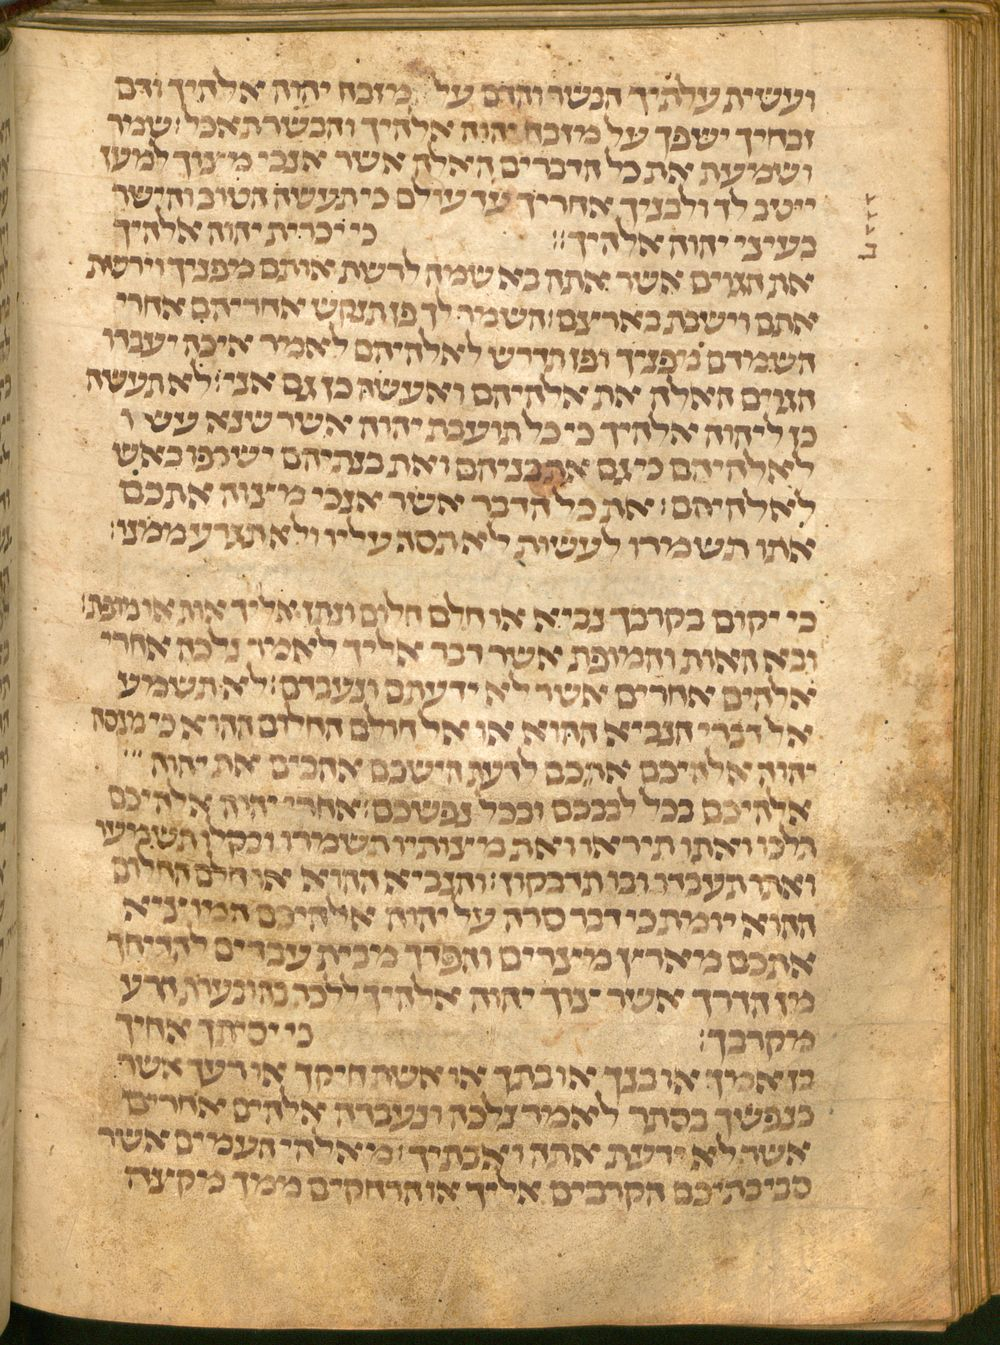 ועשית עלתיך הבשר והדם על מזבח יהוה אלהיך ודם
זבחיך ישפך על מזבח יהוה אלהיך והבשר תאכל׃ שמר
ושמעת את כל הדברים האלה אשר אנכי מצוך למען
ייטב לך ולבניך אחריך עד עולם כי תעשה הטוב והישר
בעיני יהוה אלהיך׃׃ כי יכרית יהוה אלהיך
את הגוים אשר אתה בא שמה לרשת אותם מפניך וירשת
אתם וישבת בארצם׃ השמר לך פן תנקש אחריהם אחרי
השמדם מפניך ופן תדרש לאלהיהם לאמר איכה יעבדו
הגוים האלה את אלהיהם ואעשה כן גם אני׃ לא תעשה
כן ליהוה אלהיך כי כל תועבת יהוה אשר שנא עשו
לאלהיהם כי גם את בניהם ואת בנתיהם ישרפו באש
לאלהיהם׃ את כל הדבר אשר אנכי מצוה אתכם
אתו תשמרו לעשות לא תסף עליו ולא תגרע ממנו׃
כי יקום בקרבך נביא או חלם חלום ונתן אליך אות או מופת׃
ובא האות והמופת אשר דבר אליך לאמר נלכה אחרי
אלהים אחרים אשר לא ידעתם ונעבדם׃ לא תשמע
אל דברי הנביא ההוא או אל חולם החלום ההוא כי מנסה
יהוה אלהיכם אתכם לדעת הישכם אהבים את יהוה
אלהיכם בכל לבבכם ובכל נפשכם׃ אחרי יהוה אלהיכם
תלכו ואתו תיראו ואת מצותיו תשמרו ובקלו תשמעו
ואתו תעבדו ובו תדבקון׃ והנביא ההוא או חלם החלום
ההוא יומת כי דבר סרה על יהוה אלהיכם המוציא
אתכם מארץ מצרים והפדך מבית עבדים להדיחך
מן הדרך אשר צוך יהוה אלהיך ללכת בה ובערת הרע
מקרבך׃ כי יסיתך אחיך
בן אמך או בנך או בתך או אשת חיקך או רעך אשר
כנפשך בסתר לאמר נלכה ונעבדה אלהים אחרים
אשר לא ידעת אתה ואבתיך׃ מאלהי העמים אשר
סביבתיכם הקרבים אליך או הרחקים ממך מקצה